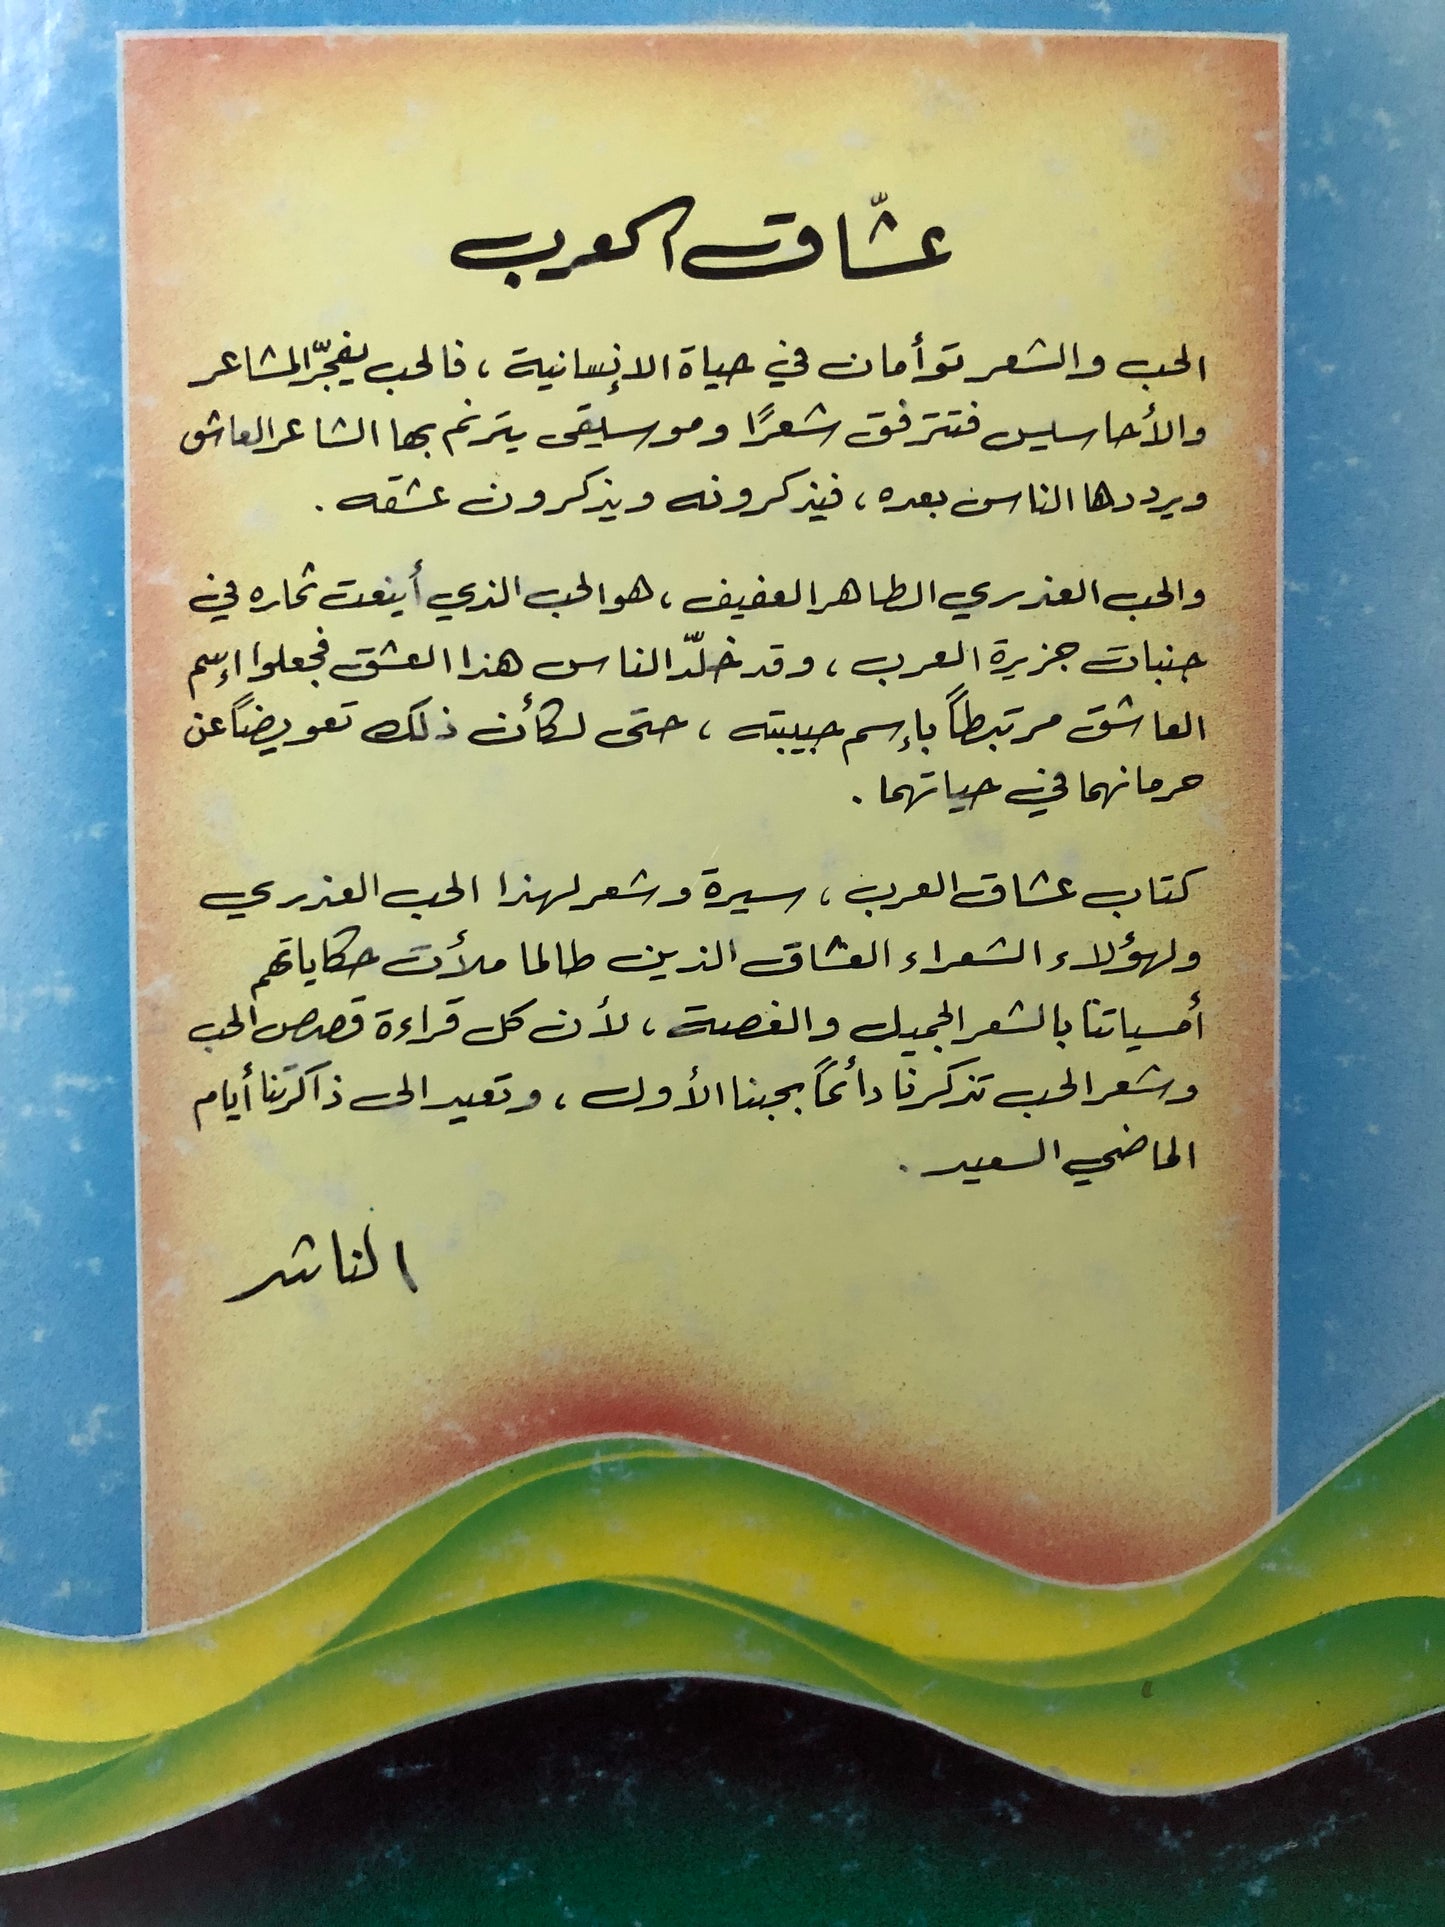 عشّاق العرب
الحب والشعر توأمان في حياة الإنسانية ، فالحب يفجّر المشاعر
والأحاسيس فتترقق شعرًا وموسيقى يترنم بها الشاعر العاشق
ويرددها الناس بعده ، فيذكرونه ويذكرون عشقه .
والحب العذري الطاهر العفيف ، هو الحب الذي أينعت ثماره في
جنبات جزيرة العرب ، وقد خلّد الناس هذا العشق فجعلوا إسم
العاشق مرتبطاً بإسم حبيبته ، حتى لكأن ذلك تعويضاً عن
حرمانهما في حياتهما .
كتاب عشاق العرب ، سيرة وشعر لهذا الحب العذري
ولهؤلاء الشعراء العشاق الذين طالما ملأت حكاياتهم
أمسياتنا بالشعر الجميل والغصة ، لأن كل قراءة قصص الحب
وشعر الحب تذكرنا دائماً بحبنا الأول ، وتعيد الى ذاكرتنا أيام
الماضي السعيد .
الناشر